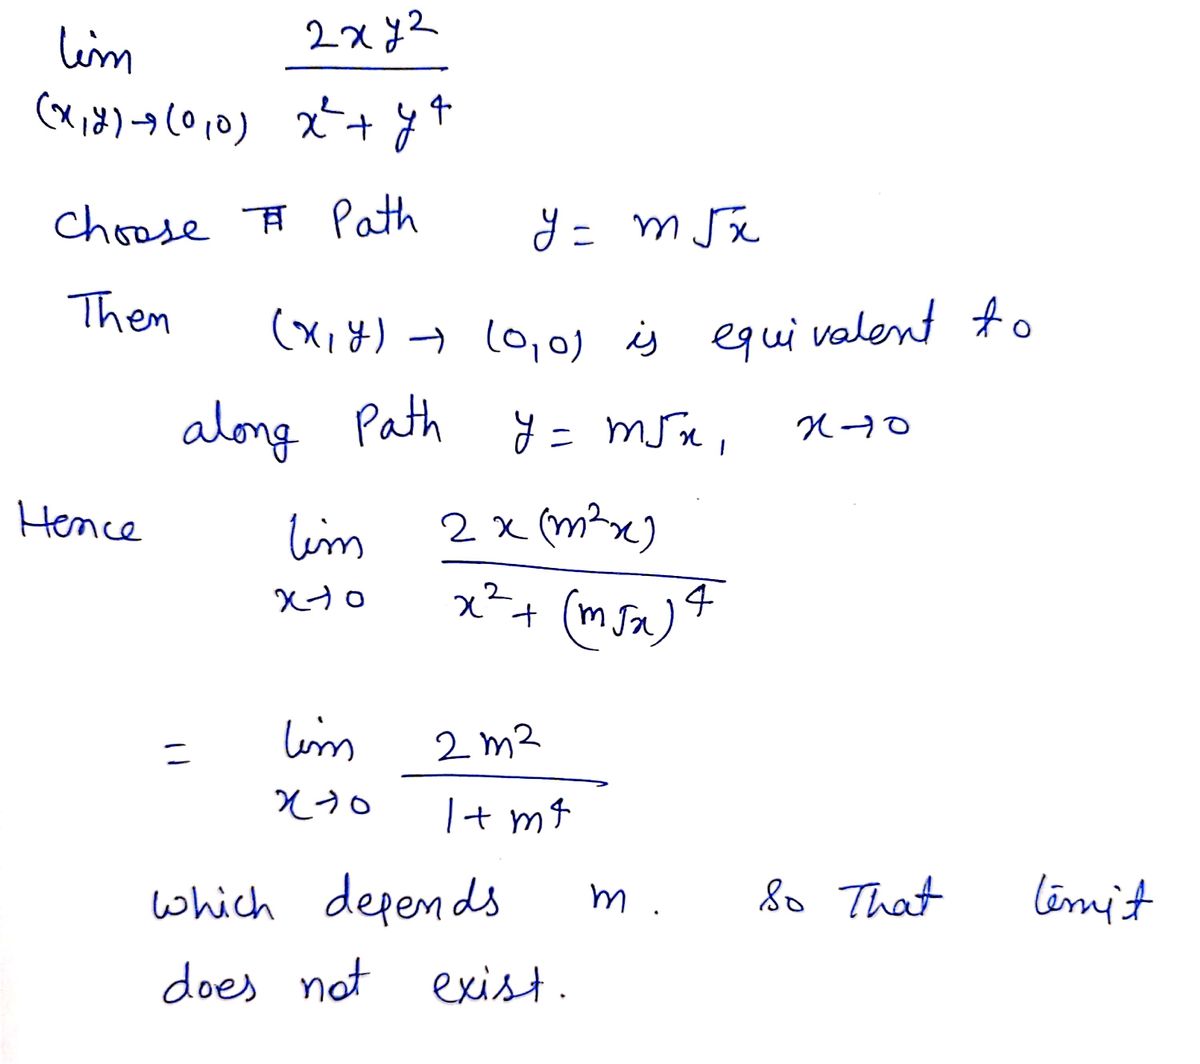 lim 2xy²
(x,y)→(0,0) x²+y⁴
choose Path y = m√x
Then (x,y) → (0,0) is equivalent to
along Path y = m√x, x→0
Hence lim 2x(m²x)
x→0 x²+(m√x)⁴
= lim 2m²
x→0 1+m⁴
which depends m. So That limit
does not exist.